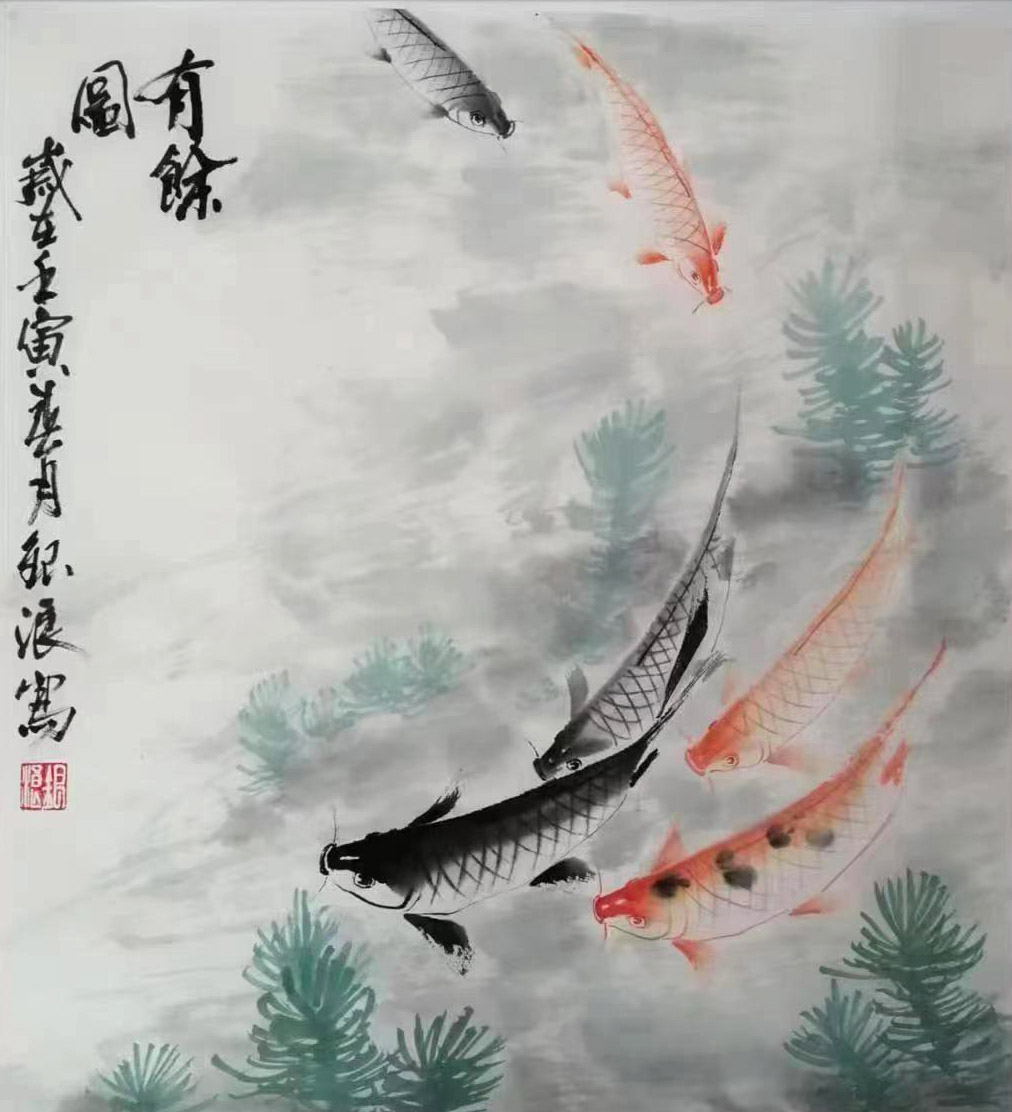 有餘
圖
歲在壬寅春月銀浪寫
銀浪